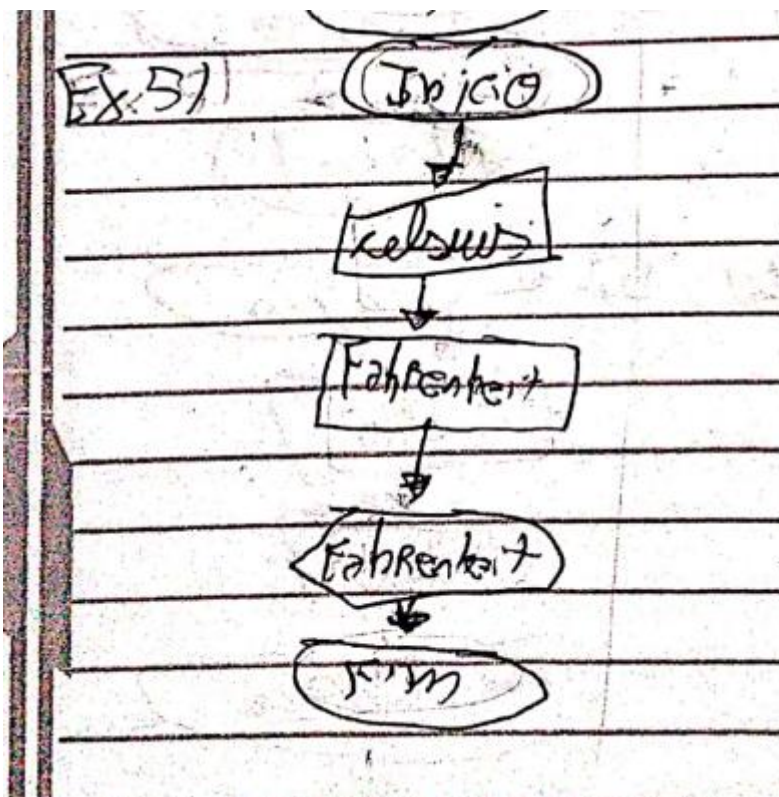 Ex.5)
Inicio
celsius
Fahrenheit
Fahrenheit
Fim